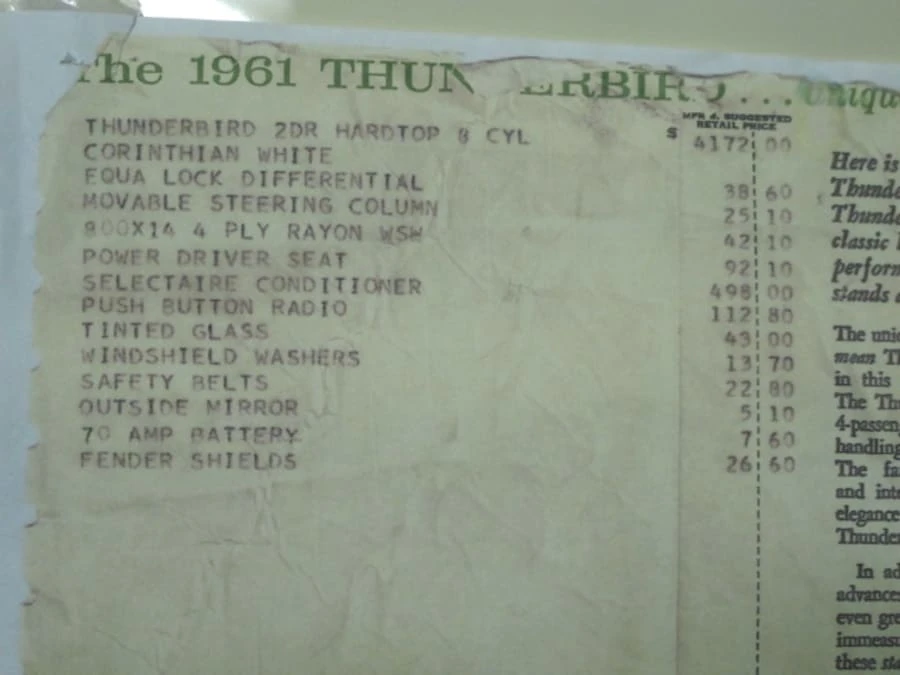 The 1961 THUNDERBIRD... unique
MFR'S. SUGGESTED
RETAIL PRICE
THUNDERBIRD 2DR HARDTOP 8 CYL $ 4172 00
CORINTHIAN WHITE
EQUA LOCK DIFFERENTIAL 38 60
MOVABLE STEERING COLUMN 25 10
800X14 4 PLY RAYON WSW 42 10
POWER DRIVER SEAT 92 10
SELECTAIRE CONDITIONER 498 00
PUSH BUTTON RADIO 112 80
TINTED GLASS 43 00
WINDSHIELD WASHERS 13 70
SAFETY BELTS 22 80
OUTSIDE MIRROR 5 10
70 AMP BATTERY 7 60
FENDER SHIELDS 26 60
Here is
Thunde
Thunde
classic
perform
stands
The uni
mean T
in this
The Th
4-passen
handling
The fa
and inte
elegance
Thunder
In ad
advances
even gre
immeasu
these sta